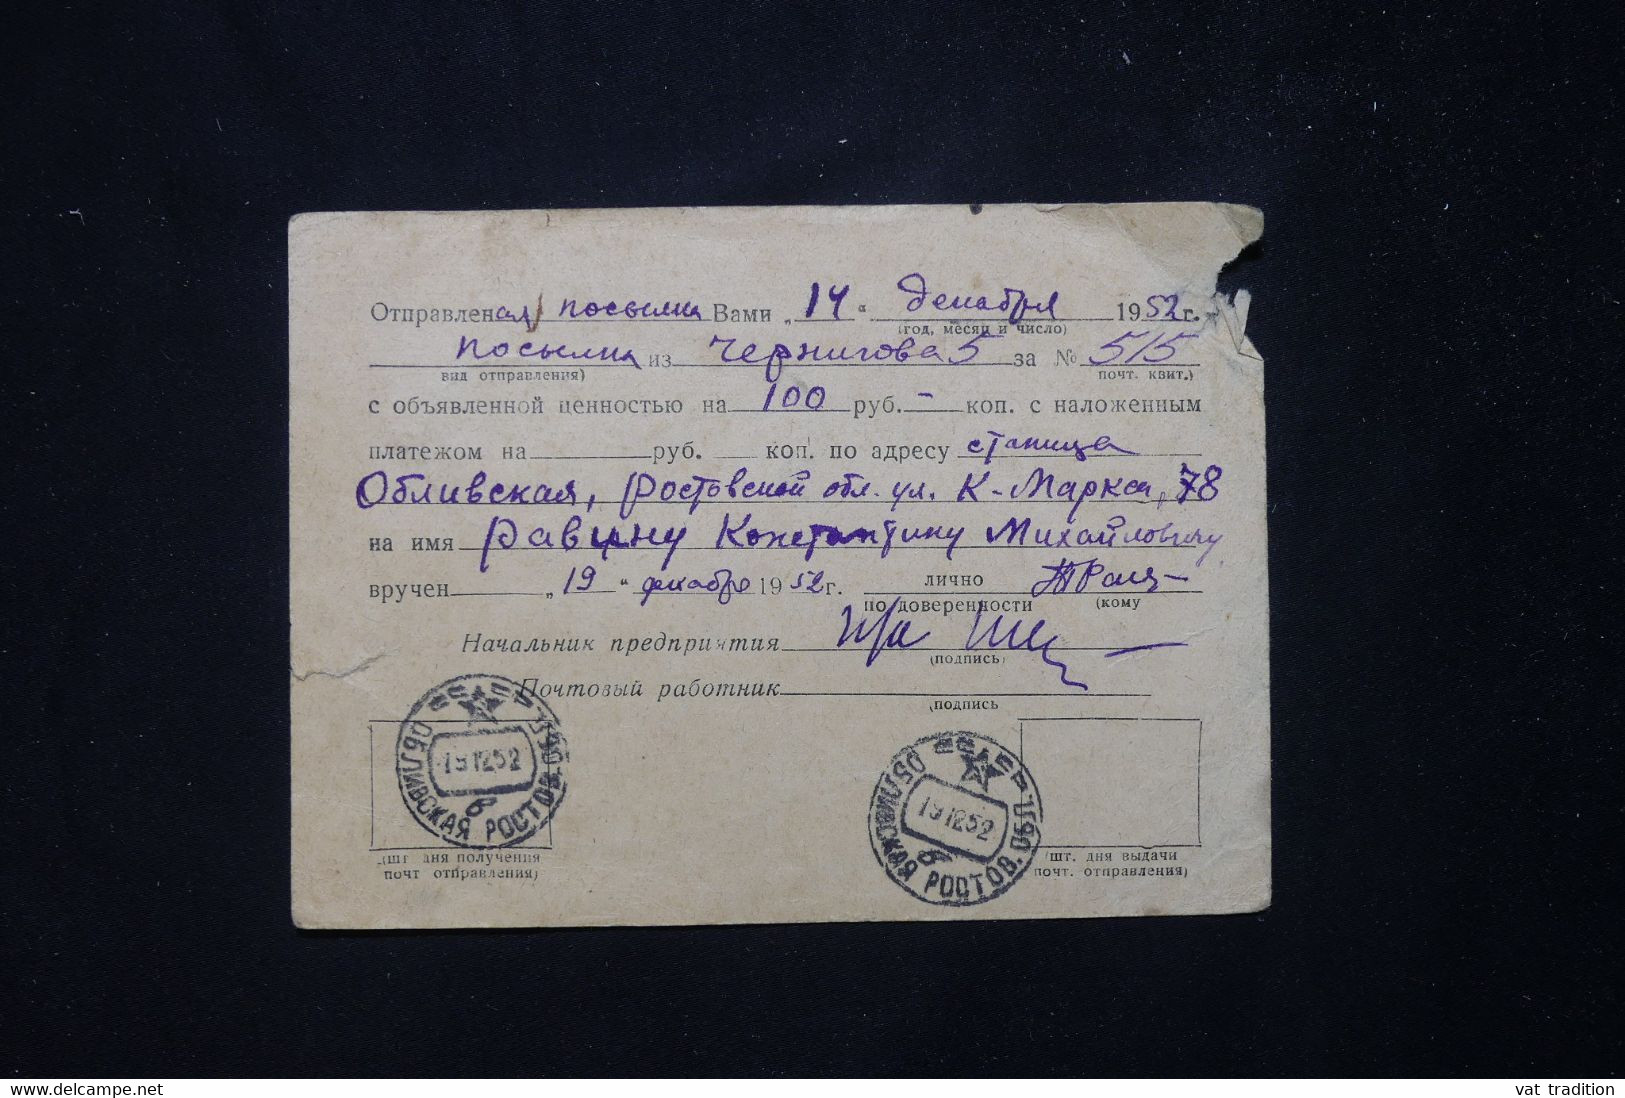 Отправленная посылка Вами „14“ декабря 1952 г.
(год, месяц и число)
посылка из Чернигова 5 за № 515
вид отправления) почт. квит.)
с объявленной ценностью на 100 руб. - коп. с наложенным
платежом на руб. коп. по адресу станица
Обливская, Ростовской обл. ул. К-Маркса, 78
на имя Равину Константину Михайловичу
вручен „19“ декабря 1952 г. лично
по доверенности (кому
Начальник предприятия
(подпись)
Почтовый работник
(подпись
ОБЛИВСКАЯ РОСТОВ. ОБЛ.
19 12 52
в
ОБЛИВСКАЯ РОСТОВ. ОБЛ.
19 12 52
в
(шт дня получения
почт отправления)
(шт. дня выдачи
почт. отправления)
www.delcampe.net
vat_tradition